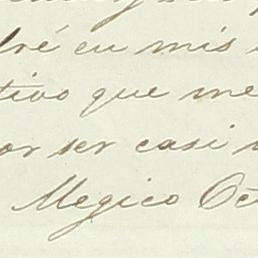 dré en mis
tivo que me
or ser casi
Megico Oct